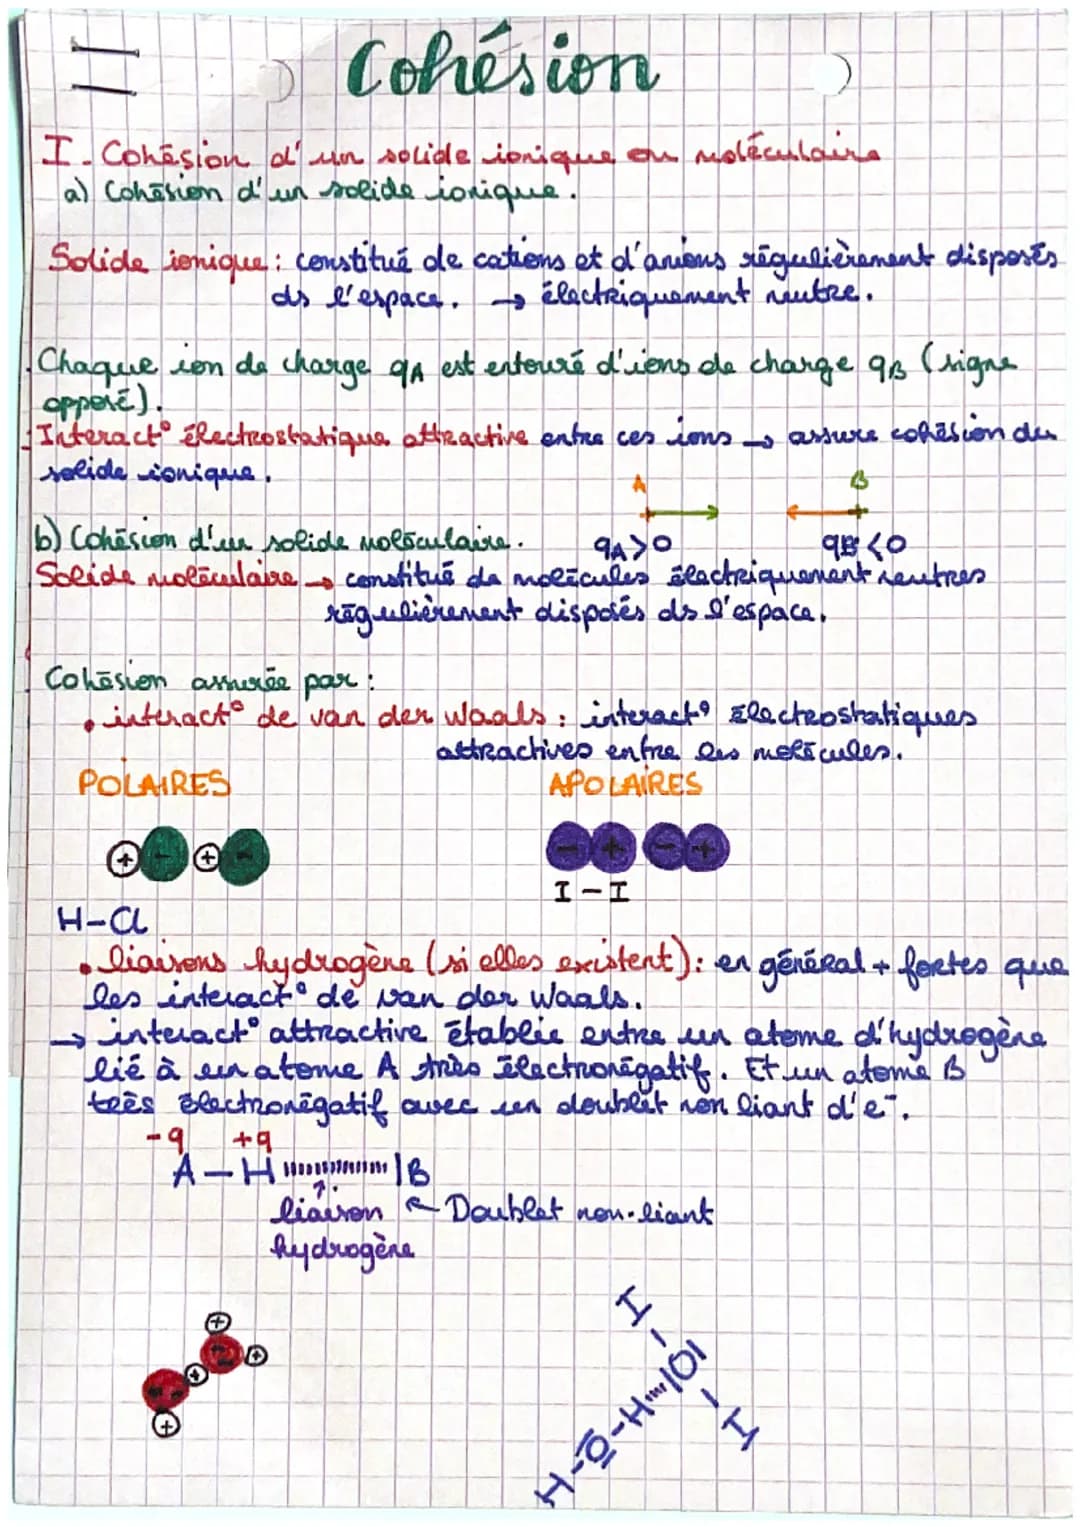 Cohésion
I. Cohésion d'un solide ionique ou moléculaire
a) Cohésion d'un solide ionique.
Solide ionique : constitué de cations et d'anions régulièrement disposés
ds l'espace. → électriquement neutre.
Chaque ion de charge qA est entouré d'ions de charge qB (signe
opposé).
Interact° électrostatique attractive entre ces ions → assure cohésion du
solide ionique.
A B
b) Cohésion d'un solide moléculaire. qA>0 qB<0
Solide moléculaire → constitué de molécules électriquement neutres
régulièrement disposés ds l'espace.
Cohésion assurée par :
• interact° de van der Waals : interact° électrostatiques
attractives entre les molécules.
POLAIRES APOLAIRES
+ - + - - + - +
I-I
H-Cl
• liaisons hydrogène (si elles existent) : en général + fortes que
les interact° de van der Waals.
→ interact° attractive établie entre un atome d'hydrogène
lié à un atome A très électronégatif. Et un atome B
très électronégatif avec un doublet non liant d'e-.
-q +q
A-H ııııııııı |B
liaison Doublet non-liant
hydrogène
H
H-O-H···|O|
H